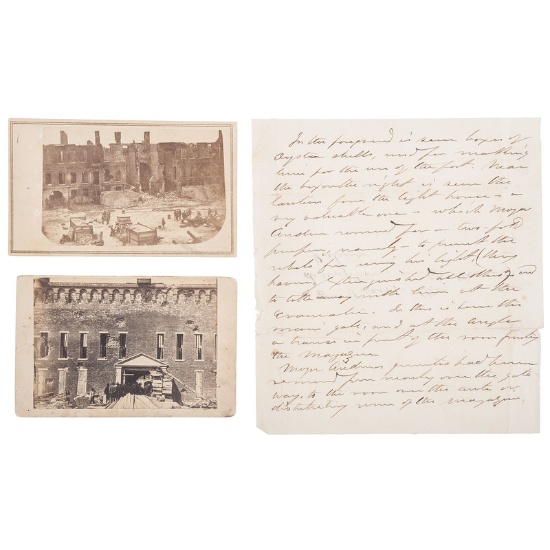 In the foreground is seen boxes of
oyster shells, used for making
lime for the use of the fort. Near
the to the right is seen the
lantern from the light house - a
very valuable one - which Major
Anderson removed for a two fold
purpose, namely - to prevent the
rebels from using his light (they
having extinguished all others) and
to take away with him at the
evacuation. In this is seen the
main gate; and at the angle
a traverse in front of the room fronting
the Magazine.
Major Anderson's quarters had been
removed from nearly over the gate
way, to the room over the ante or
distributing room of the magazine.